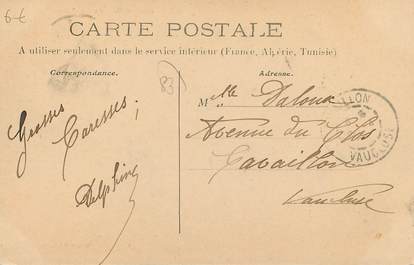 6 €
CARTE POSTALE
A utiliser seulement dans le service intérieur (France, Algérie, Tunisie)
Correspondance.
Adresse.
83
Grosses
Caresses;
Delphine
Mlle Daloux
Avenue du Clos
Cavaillon
Vaucluse
VAUCLUSE